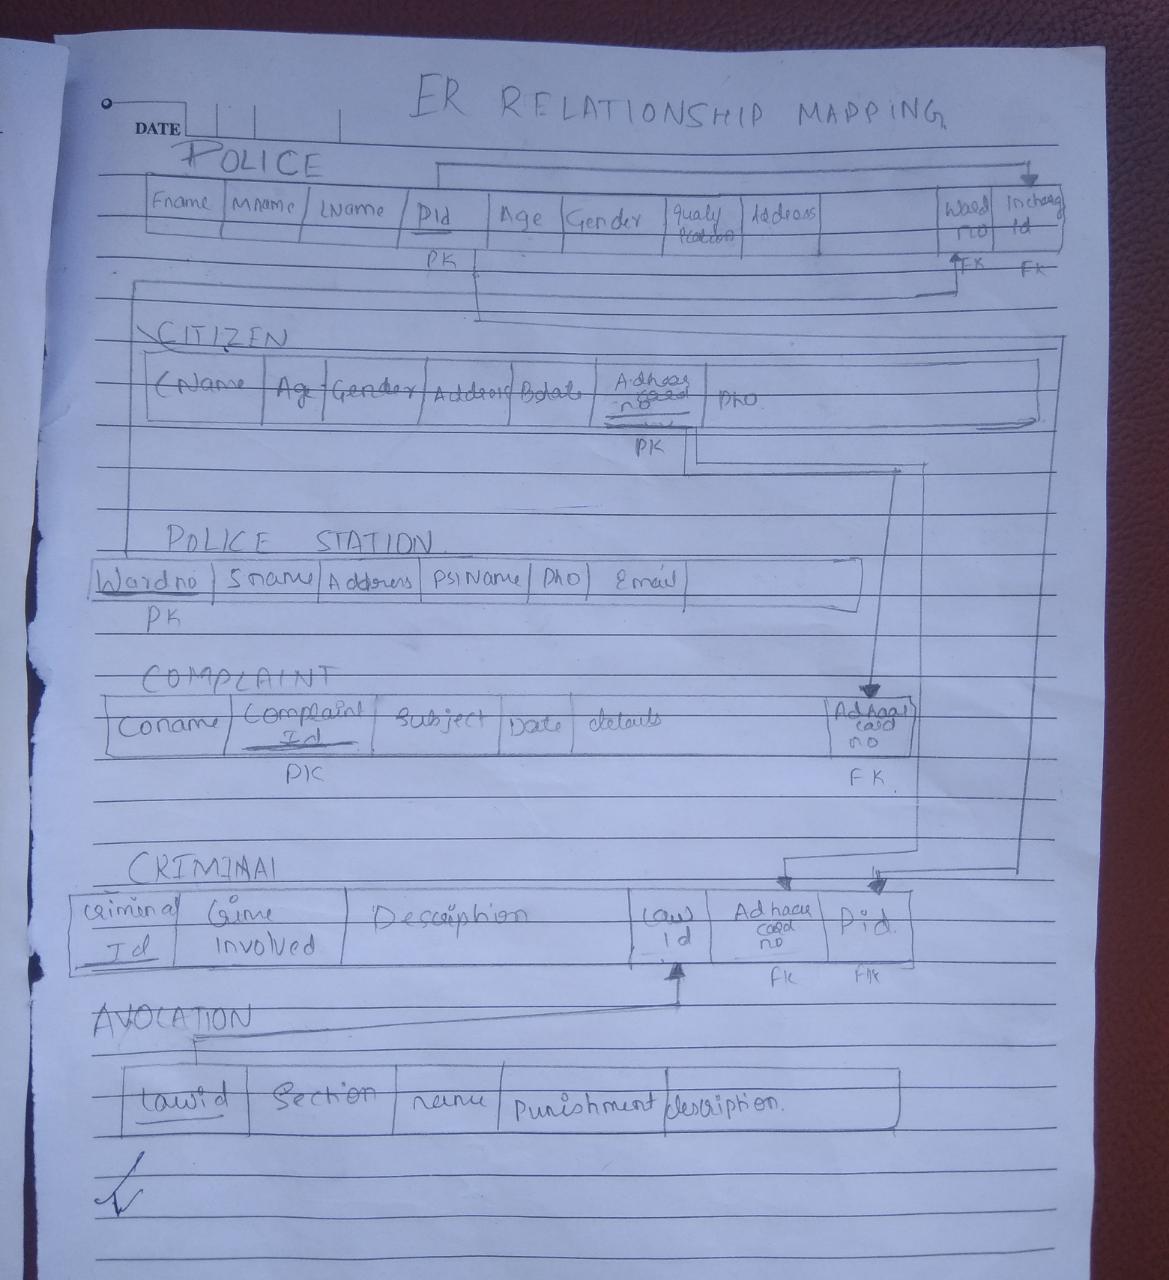 ER RELATIONSHIP MAPPING
DATE
POLICE
Fname Mname LName PId Age Gender Qualification Address Ward no Incharg Id
PK FK FK
CITIZEN
CName Age Gender Address Bdate Adhaar card no PhO
PK
POLICE STATION
Wardno Sname Address PSIName PhO Email
PK
COMPLAINT
Coname Complaint Id Subject Date details Adhaar card no
PK FK
CRIMINAL
Criminal Id Crime Involved Description Law id Adhaar card no Pid.
FK FK
AVOCATION
Lawid Section name Punishment description.